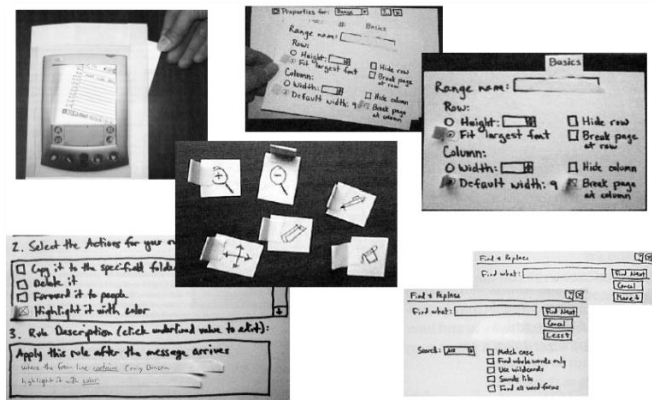 Properties for: Range
Basics
Range name:
Row:
Height:
Hide row
Fit largest font
Break page
at row
Column:
Width:
Hide column
Default width: 9
Break page
at column
Basics
Range name:
Row:
Height:
Hide row
Fit largest font
Break page
at row
Column:
Width:
Hide column
Default width: 9
Break page
at column
2. Select the Actions for your
Copy it to the specified folde
Delete it
Forward it to people
Highlight it with color
3. Rule Description (click underlined value to edit):
Apply this rule after the message arrives
where the From line contains
highlight it with color
Find & Replace
?
X
Find what:
Find Next
Cancel
More
Find & Replace
?
X
Find what:
Find Next
Cancel
Less
Search: All
Match case
Find whole words only
Use wildcards
Sounds like
Find all word forms